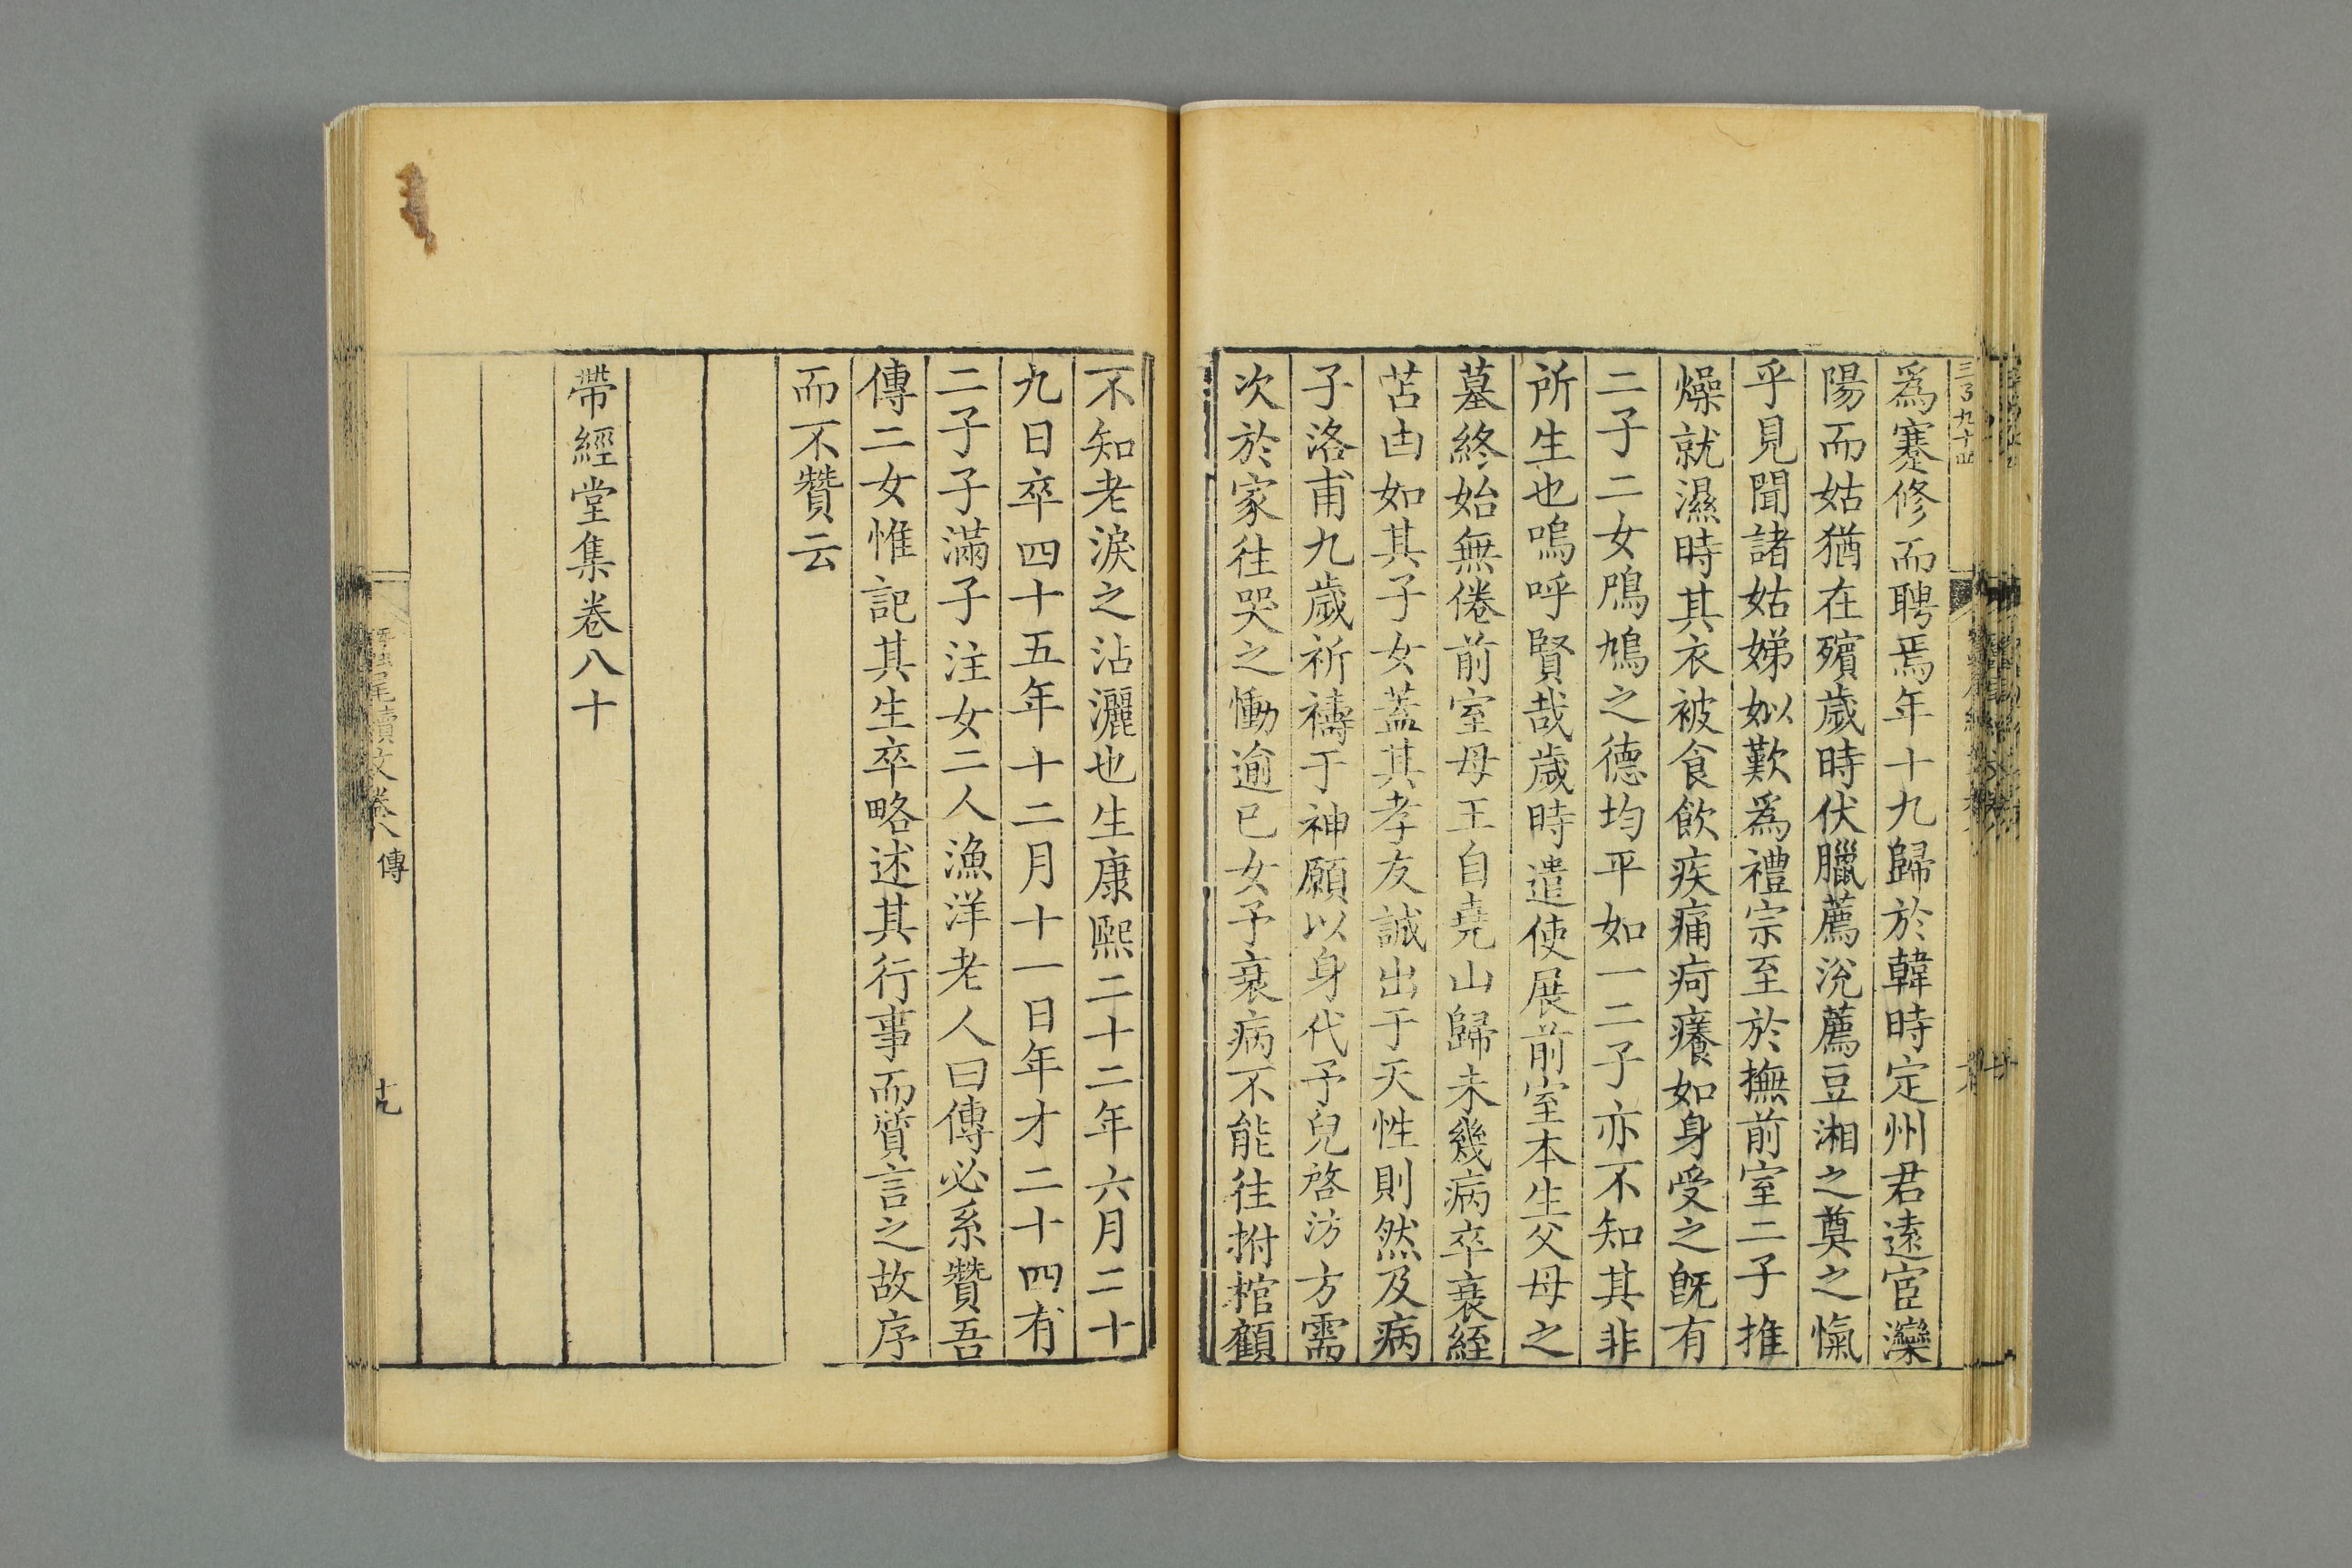 爲蹇修而聘焉年十九歸於韓時定州君遠宦灤
陽而姑猶在殯歲時伏臘薦涗薦豆湘之奠之愾
乎見聞諸姑娣姒歎爲禮宗至於撫前室二子推
燥就濕時其衣被食飲疾痛疴癢如身受之旣有
二子二女鳲鳩之德均平如一二子亦不知其非
所生也嗚呼賢哉歲時遣使展前室本生父母之
墓終始無倦前室母王自堯山歸未幾病卒衰絰
苫凷如其子女蓋其孝友誠出于天性則然及病
子洛甫九歲祈禱于神願以身代予兒啓汸方需
次於家往哭之慟逾已女予衰病不能往拊棺顧
不知老淚之沾灑也生康熙二十二年六月二十
九日卒四十五年十二月十一日年才二十四有
二子子滿子注女二人漁洋老人曰傳必系贊吾
傳二女惟記其生卒略述其行事而質言之故序
而不贊云
帶經堂集卷八十
尾續文卷八 傳